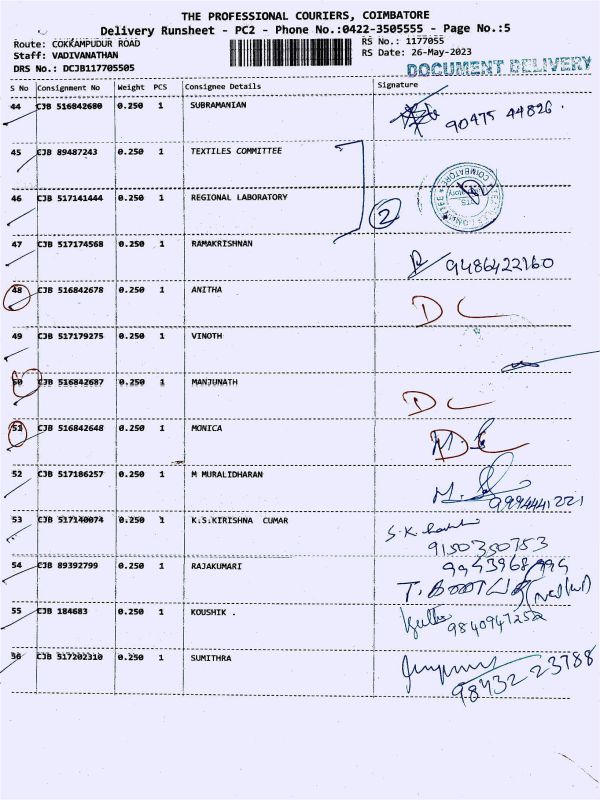 THE PROFESSIONAL COURIERS, COIMBATORE
Delivery Runsheet - PC2 - Phone No.:0422-3505555 - Page No.:5
Route: COKKAMPUDUR ROAD RS No.: 1177055
Staff: VADIVANATHAN RS Date: 26-May-2023
DRS No.: DCJB117705505 DOCUMENT DELIVERY
S No Consignment No Weight PCS Consignee Details Signature
44 CJB 516842680 0.250 1 SUBRAMANIAN
90475 44826
45 CJB 89487243 0.250 1 TEXTILES COMMITTEE
46 CJB 517141444 0.250 1 REGIONAL LABORATORY 2
COIMBATORE
47 CJB 517174568 0.250 1 RAMAKRISHNAN
9486422160
48 CJB 516842678 0.250 1 ANITHA DC
49 CJB 517179275 0.250 1 VINOTH
50 CJB 516842687 0.250 1 MANJUNATH DC
51 CJB 516842648 0.250 1 MONICA DC
52 CJB 517186257 0.250 1 M MURALIDHARAN
9994441221
53 CJB 517140074 0.250 1 K.S.KIRISHNA CUMAR S.K
9150350753
54 CJB 89392799 0.250 1 RAJAKUMARI 9943968994
55 CJB 184683 0.250 1 KOUSHIK .
9840947252
56 CJB 517202310 0.250 1 SUMITHRA
98432 23788